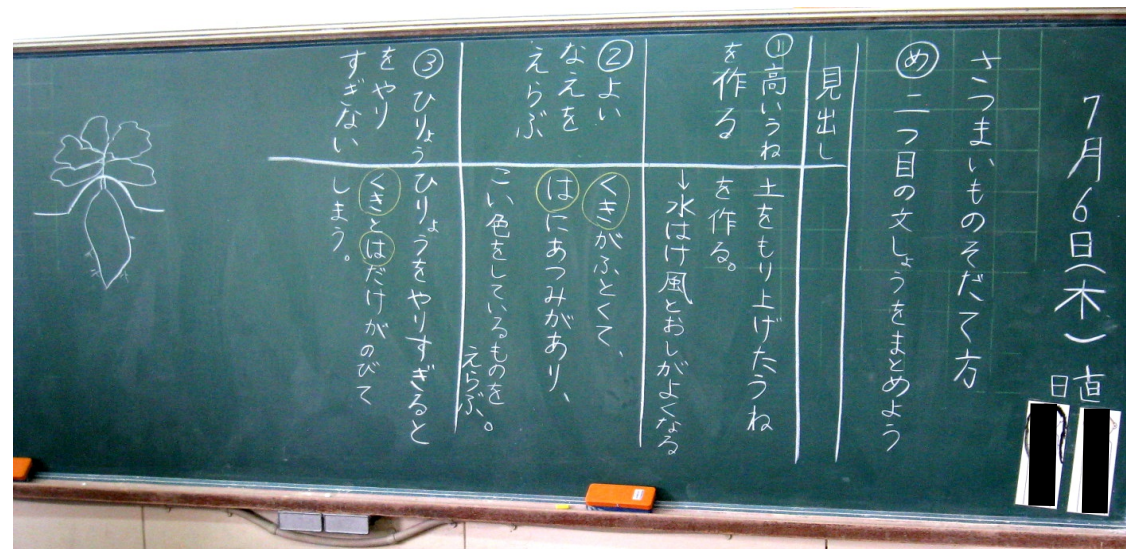 7月6日(木)
日直
さつまいものそだて方
め 二つ目の文しょうをまとめよう
見出し
① 高いうね
を作る
土をもり上げたうね
を作る。
→水はけ風とおしがよくなる
② よい
なえを
えらぶ
くきがふとくて、
はにあつみがあり、
こい色をしているものを
えらぶ。
③ ひりょう
をやり
すぎない
ひりょうをやりすぎると
くきとはだけがのびて
しまう。